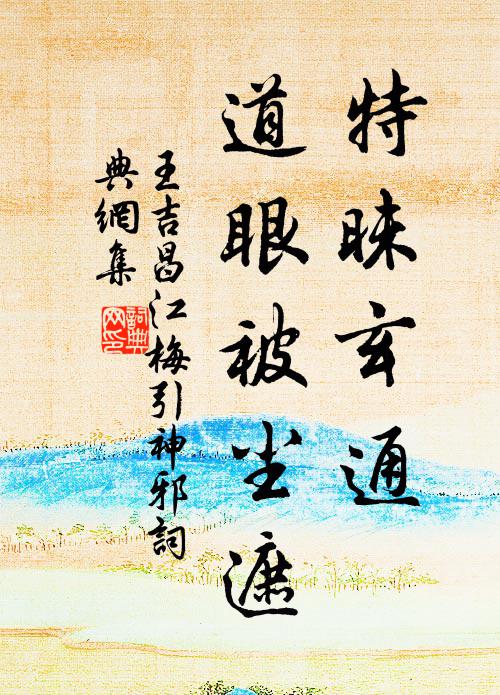 特昧玄通
道眼被尘遮
王吉昌江梅引神邪詞
典網集
詞典
网印